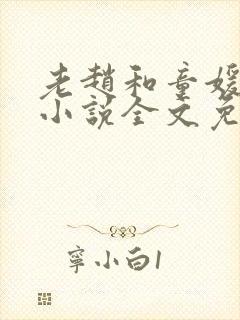 老趙和童媛
小說全文免
寧小白1